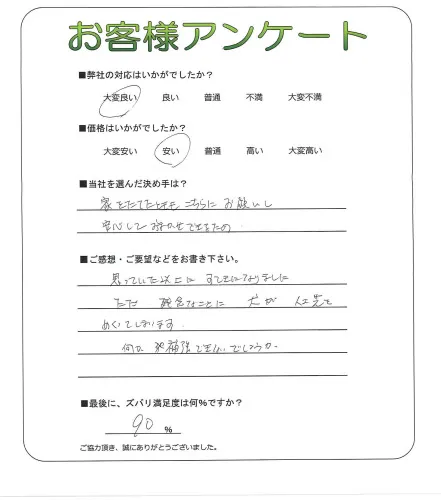 お客様アンケート
■弊社の対応はいかがでしたか？
大変良い 良い 普通 不満 大変不満
■価格はいかがでしたか？
大変安い 安い 普通 高い 大変高い
■当社を選んだ決め手は？
家をたてたときも こちらに お願いし
安心して おまかせできたの
■ご感想・ご要望などをお書き下さい。
思っていた以上に すてきになりました
ただ 残念なことに 犬が 人工芝を
めくてしまいます.
何か 補強できないでしょうか.
■最後に、ズバリ満足度は何%ですか？
90 %
ご協力頂き、誠にありがとうございました。